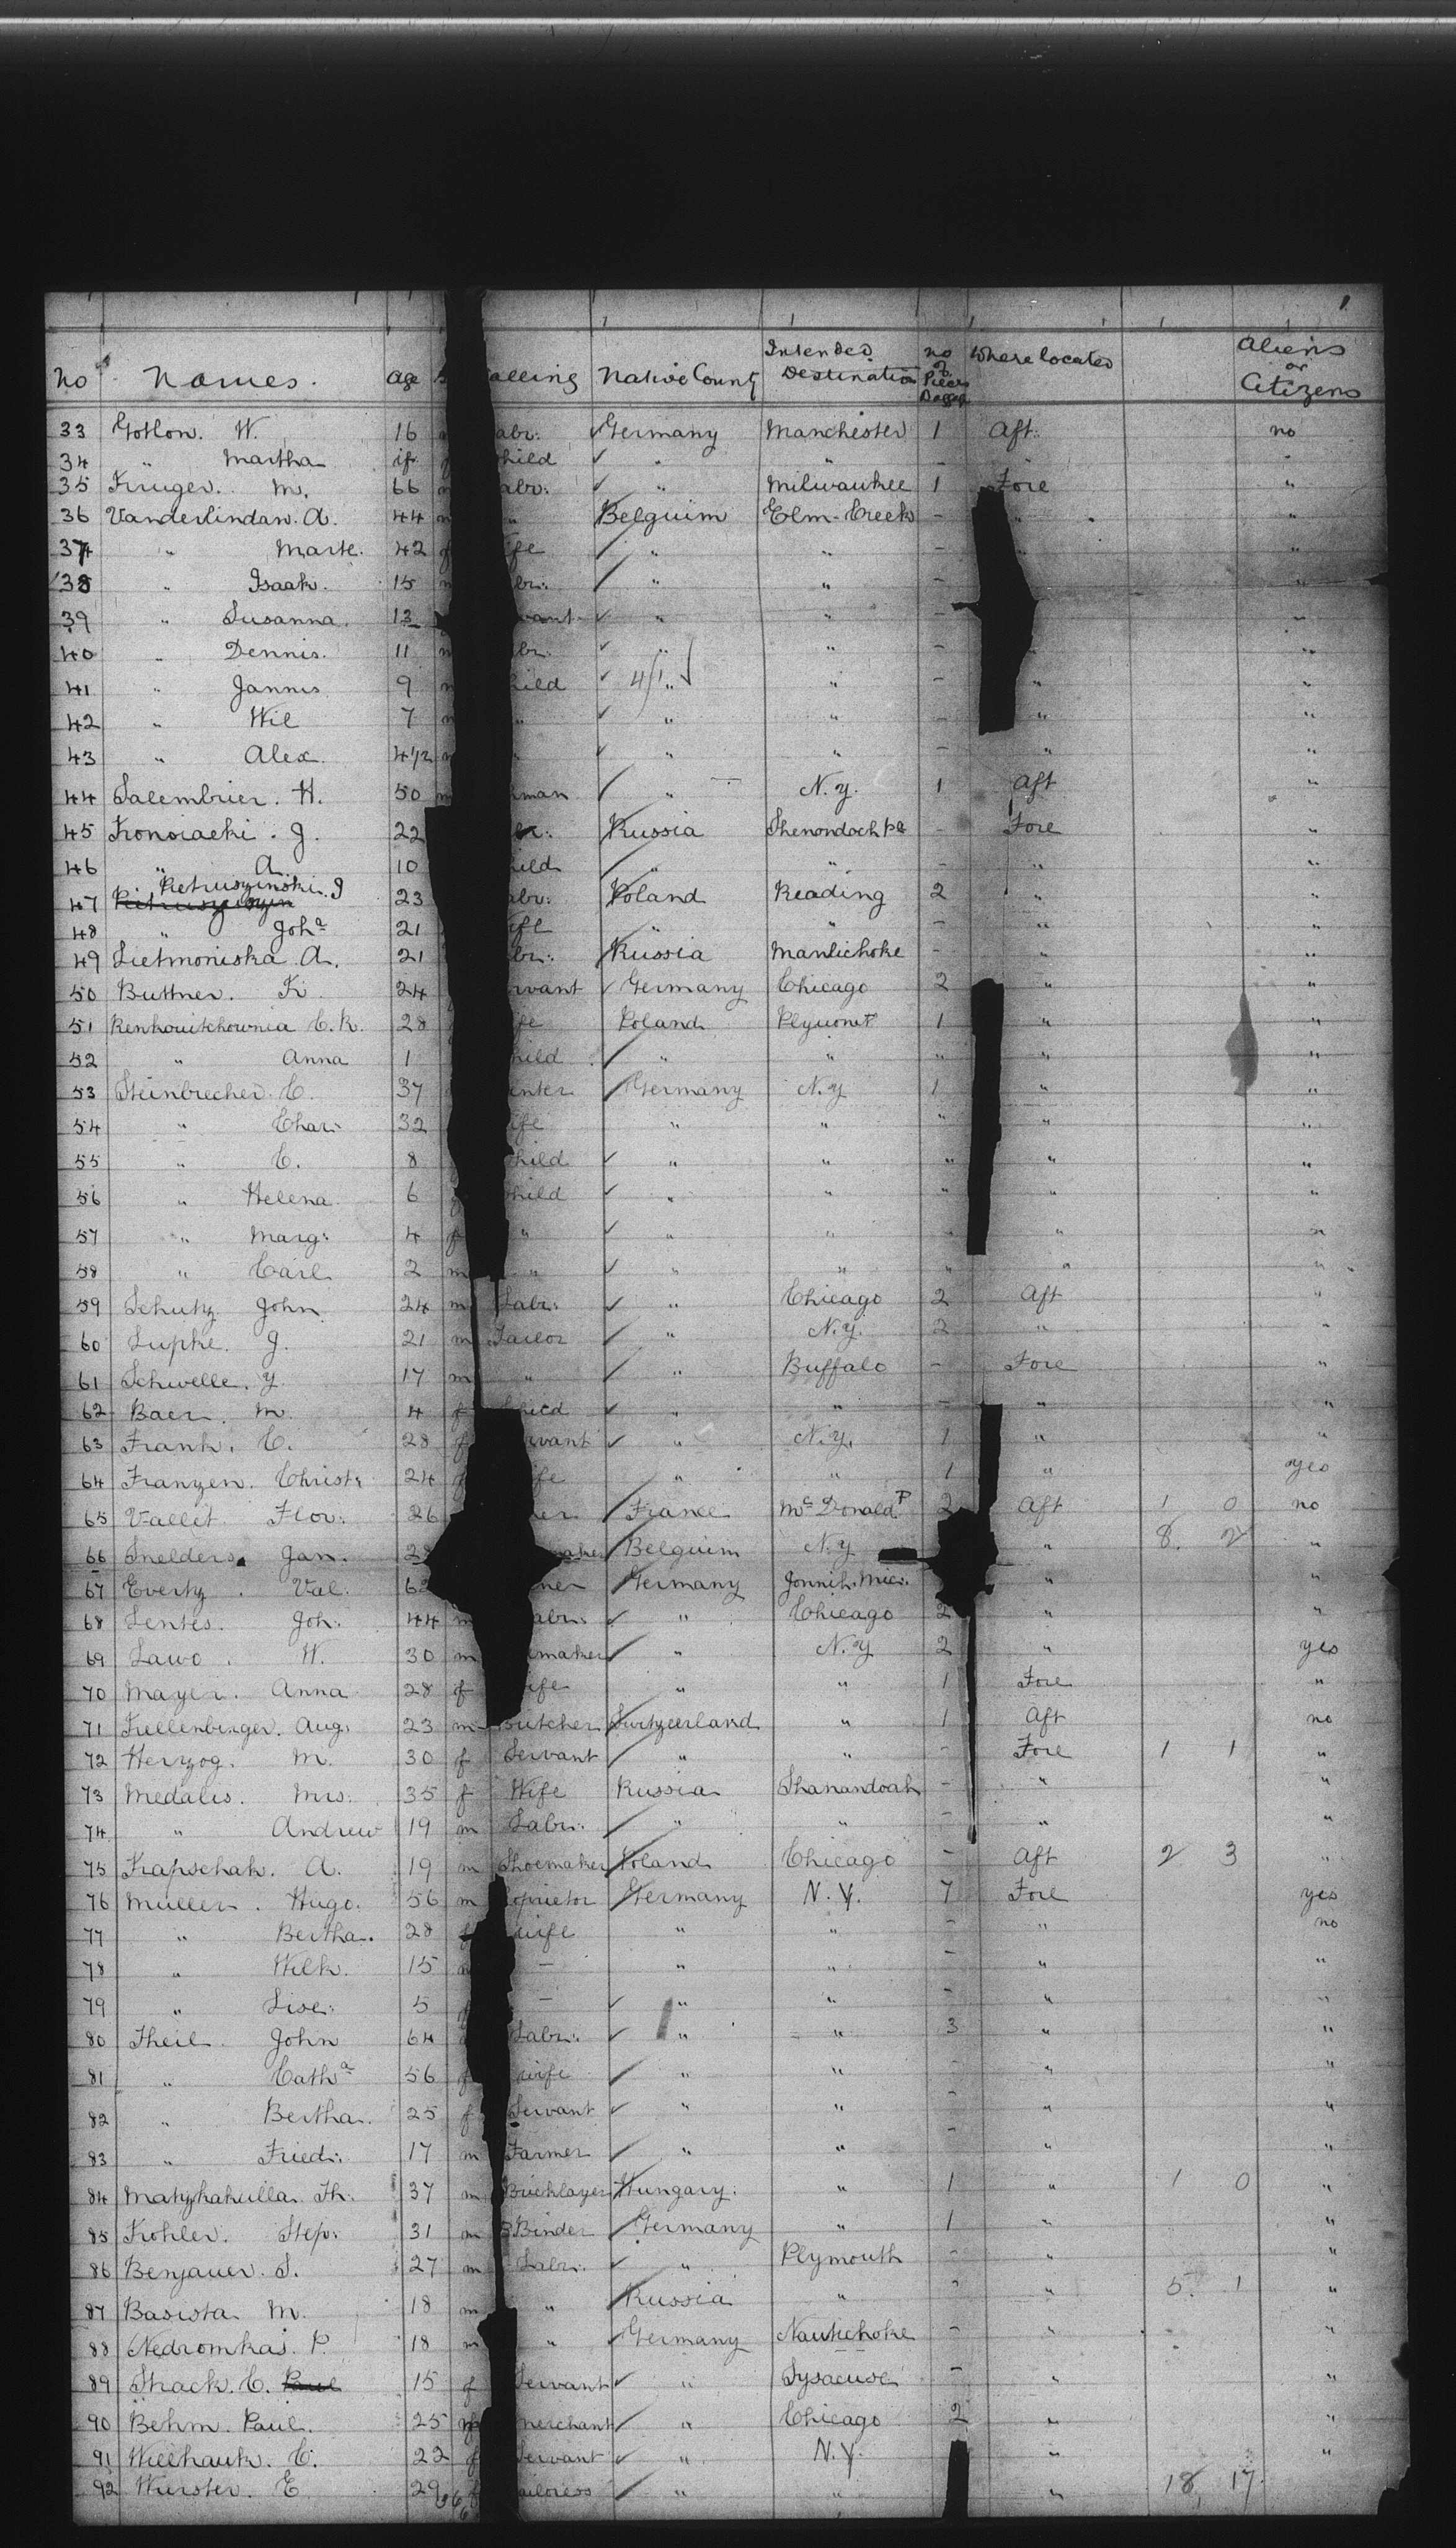 No Names. Age alling Native County Intended Destination no of Pieces Where located Aliens or Citizens
33 Gotlon. W. 16 abr: Germany Manchester 1 Aft. no
34 " Martha if hild " " - " "
35 Kruger. M. 66 abr: " Milwaukee 1 Fore "
36 Vanderlindan. A. 44 m " Belguim Elm-Creek - " "
37 " Marie. 42 fe " " - " "
38 " Isaak. 15 br: " " - "
39 " Susanna. 13 vant " " - "
40 " Dennis. 11 br. " " - " "
41 " Jannis 9 hild 4/1 " " - " "
42 " Wil 7 " " " - " "
43 " Alex. 4 1/2 " " " - " "
44 Salembrier. H. 50 m man " N.y. 1 Aft "
45 Kronsiacki. J. 22 br: Russia Shenondoch Pa - Fore "
46 " A. 10 ild " " - " "
47 Petruszinski. J 23 abr: Poland Reading 2 " "
48 " Joha 21 ife " " - " "
49 Lietmoniska A. 21 br: Russia Manlichoke - " "
50 Buttner. K. 24 rvant Germany Chicago 2 " "
51 Renkouitchownia C. K. 28 fe Poland 1 " "
52 " Anna 1 hild " " " " "
53 Steinbrecher. C. 37 enter Germany N.y 1 " "
54 " Char: 32 ife " " " " "
55 " C. 8 hild " " " " "
56 " Helena 6 hild " " " " "
57 " Marg: 4 f " " " " " "
58 " Carl 2 m " " " " " "
59 Schutz John 24 m Labr: " Chicago 2 Aft "
60 Lupke. J. 21 m Tailor " N.y. 2 " "
61 Schwelle. y. 17 m " " Buffalo - Fore "
62 Baer. M. 4 f hild " " - " "
63 Frank. C. 28 f rvant " N.y. 1 " "
64 Franzen. Christ: 24 f ife " " 1 " yes
65 Vallit. Flor: 26 er France Mc Donald P 2 Aft 1 0 no
66 Snelders. Jan. 28 make Belguim N.y " 8. 2 "
67 Evertz. Val: 6 ner Germany " "
68 Lentes. Joh: 44 m abr: " Chicago 2 " "
69 Lawo. W. 30 m maker " N.y 2 " yes
70 Mayer. Anna 28 f ife " " 1 Fore "
71 Fullenberger. Aug: 23 m Butcher Switzerland " 1 Aft no
72 Herzog. M. 30 f Servant " " - Fore 1 1 "
73 Medalis. Mrs: 35 f Wife Russia Shanandoah - " "
74 " Andrew 19 m Labr: " " - " "
75 Krapschak. A. 19 m Shoemaker Poland Chicago - Aft 2 3 "
76 Muller. Hugo. 56 m oprietor Germany N.Y. 7 Fore yes
77 " Bertha. 28 f wife " " - " no
78 " Wilh. 15 - " " - " "
79 " Lise: 5 - " " - " "
80 Theil. John 64 Labr: " " 3 " "
81 " Catha 56 f wife " " - " "
82 " Bertha. 25 f Servant " " - " "
83 " Fried: 17 m Farmer " " - " "
84 Matyhakulla. Th: 37 m Bricklayer Hungary. " 1 " 1 0 "
85 Krohler. Step: 31 m Binder Germany " 1 " "
86 Benjauer. S. 27 m Labr: " Plymouth - " "
87 Basista M. 18 m " Russia " " " 5. 1 "
88 Nedromkas. P. 18 m " Germany Nantichoke - " "
89 Strack. C. 15 f Servant " Sysacuse - " "
90 Behm. Paul. 25 m merchant " Chicago 2 " "
91 Willhauk. C. 22 f Servant " N.Y. " "
92 Wurster. E. 29 f ailoress " " " 18 17.